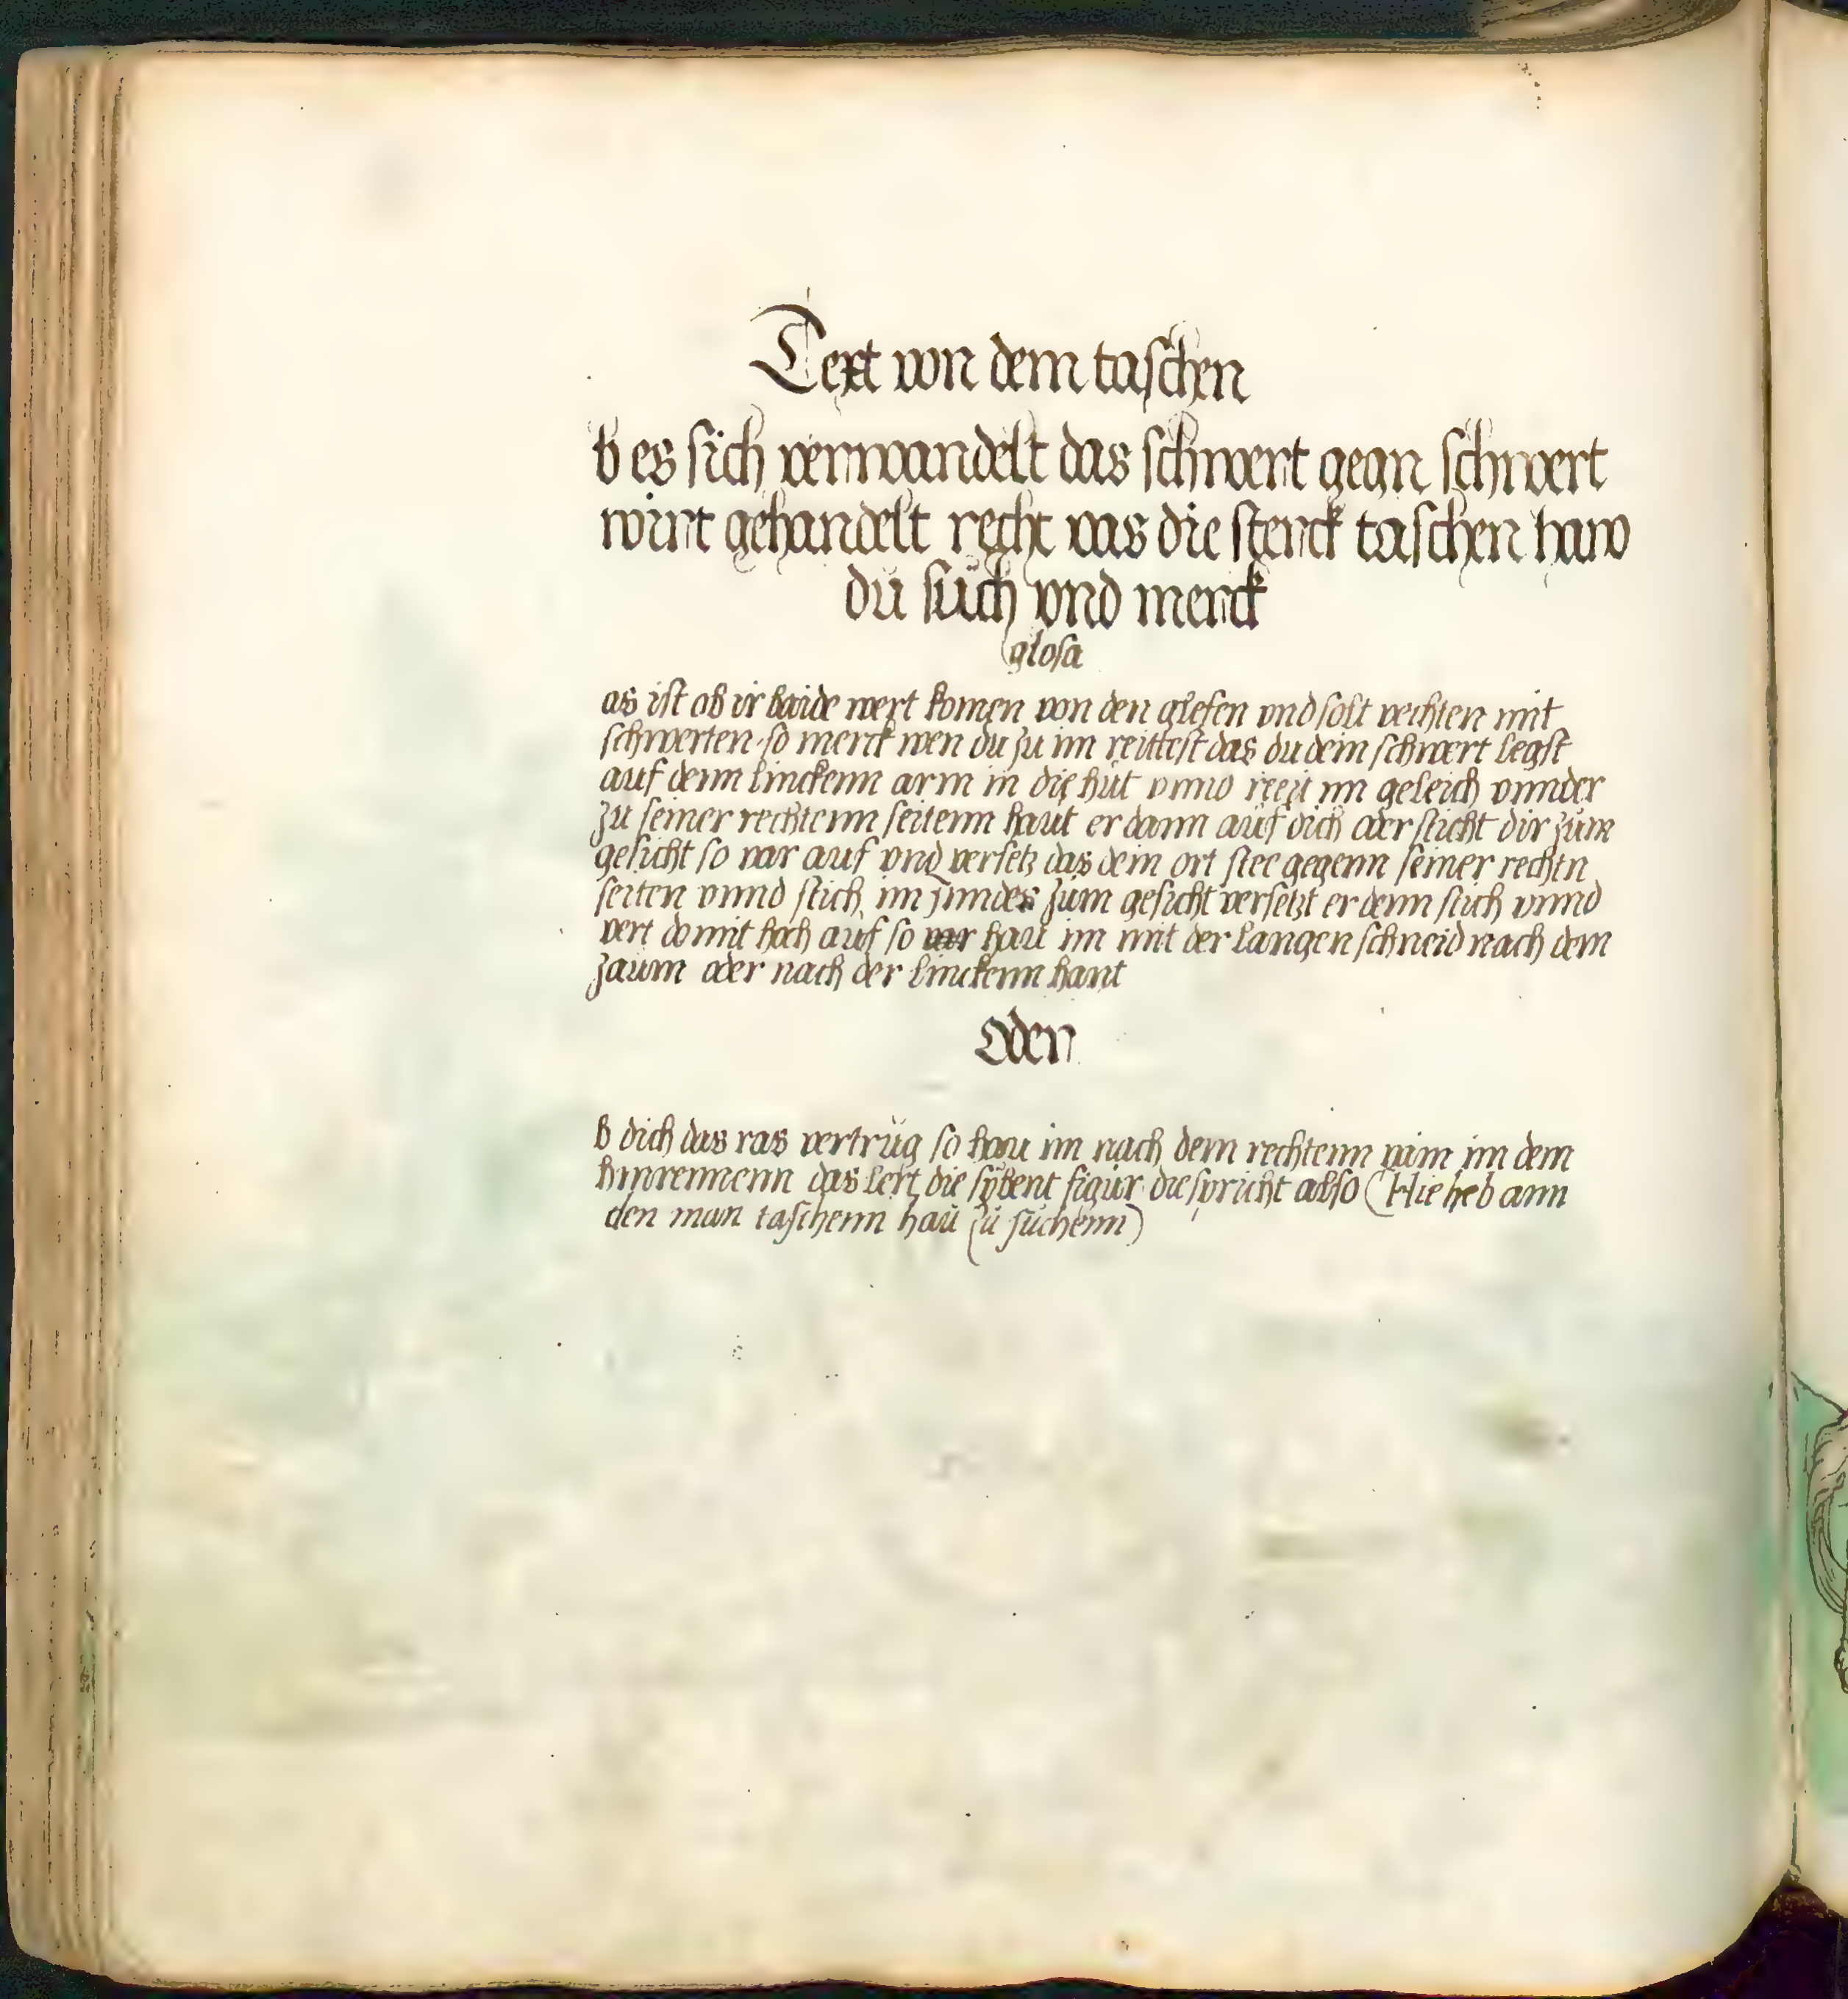 Text von dem taschen
b es sich verwandelt das schwert gegn schwert
wirt gehandelt recht vas die sterck taschen haw
du such vnd merck
glosa
as ist ob ir baide wert komen von den glefen vnd solt vechten mit
schwerten so merck wen du zu im reittest das du dein schwert legst
auf denn linckenn arm in die hut vnnd reeit im geleich vnnder
zu seiner rechtenn seitenn haut er dann auf dich oder sticht dir zum
gesicht so var auf vnd versetz das dein ort stee gegenn seiner rechtn
seiten vnnd stich im Jnndes zum gesicht versetzt er denn stich vnnd
vert domit hoch auf so hau im mit der langen schneid nach dem
zaum oder nach der linckenn hant
Oder
b dich das ras vertrug so hau im nach dem rechtenn pain im dem
hinrennenn das lert die sybent figur die spricht also (Hie heb ann
den man taschenn hau zu suchenn)